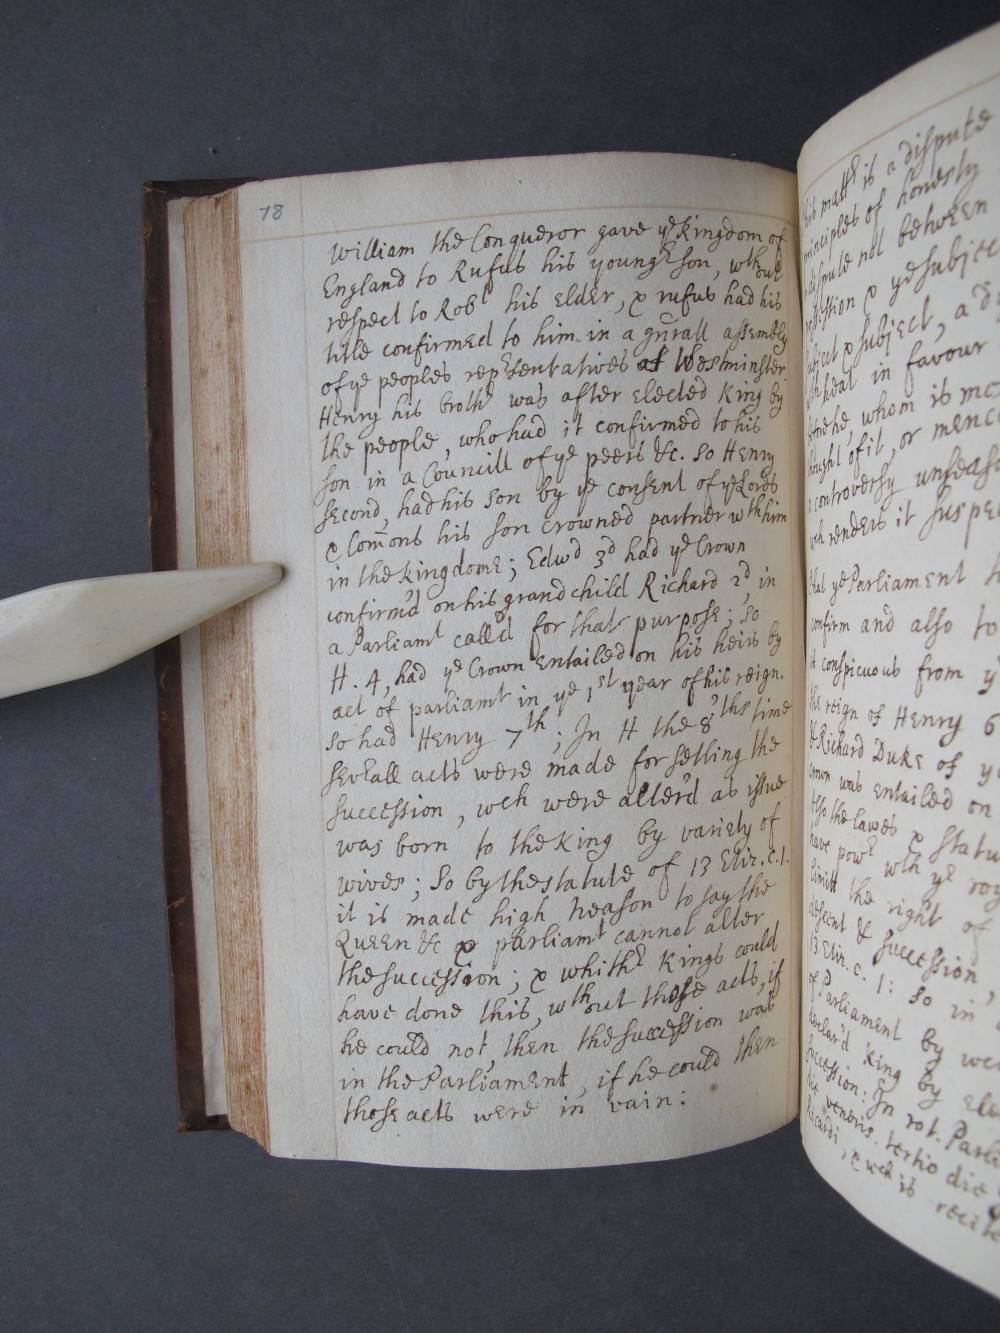 78
William the Conqueror gave ye Kingdom of
England to Rufus his youngr son, wthout
respect to Robt his Elder, & rufus had his
title confirmed to him in a gñrall assembly
of ye peoples reprsentatives at Westminster
Henry his brothr was after elected King by
the people, who had it confirmed to his
son in a Councill of ye peers &c. So Henry
second, had his son by ye consent of ye Lords
& Com̄ons his son crowned partner wth him
in the kingdome; Edwd 3d had ye Crown
confirm'd on his grandchild Richard 2d, in
a Parliamt call'd for that purpose; So
H. 4, had ye Crown Entailed on his heirs by
act of parliamt in ye 1st year of his reign.
So had Henry 7th; In H the 8ths time
sevrall acts were made for setling the
succession, wch were alter'd as issue
was born to the King by variety of
wives; So by the statute of 13 Eliz. c. 1.
it is made high treason to say the
Queen &c & parliamt cannot alter
the succession; & whithr Kings could
have done this, wthout those acts, if
he could not, then the succession was
in the Parliament, if he could then
those acts were in vain:
his mattr is a dispute
principles of honesty
dispute not between
& ye subject
subject & subject, a
heat in favour
before he, whom is
thought of it, or
a controversy
wch renders it
that ye Parliament
confirm and also to
is conspicuous from
the reign of Henry 6
& Richard Duke of
crown was entailed on
also the lawes &
have powr wth ye
limitt the right of
descent & succession,
13 Eliz. c. 1: So in
of Parliament by
declar'd King by
succession: In rot.
die veneris. tertio die
Ricardi, & wch is